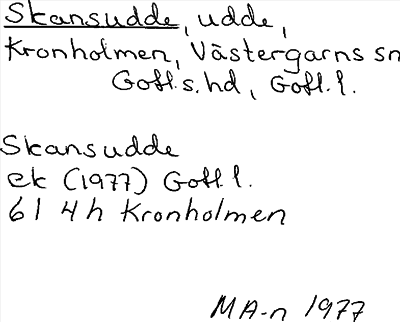 Skansudde, udde,
Kronholmen, Västergarns sn
Gotl.s. hd, Gotl. l.
Skansudde
ek (1977) Gotl. l.
61 4h Kronholmen
MA-n 1977